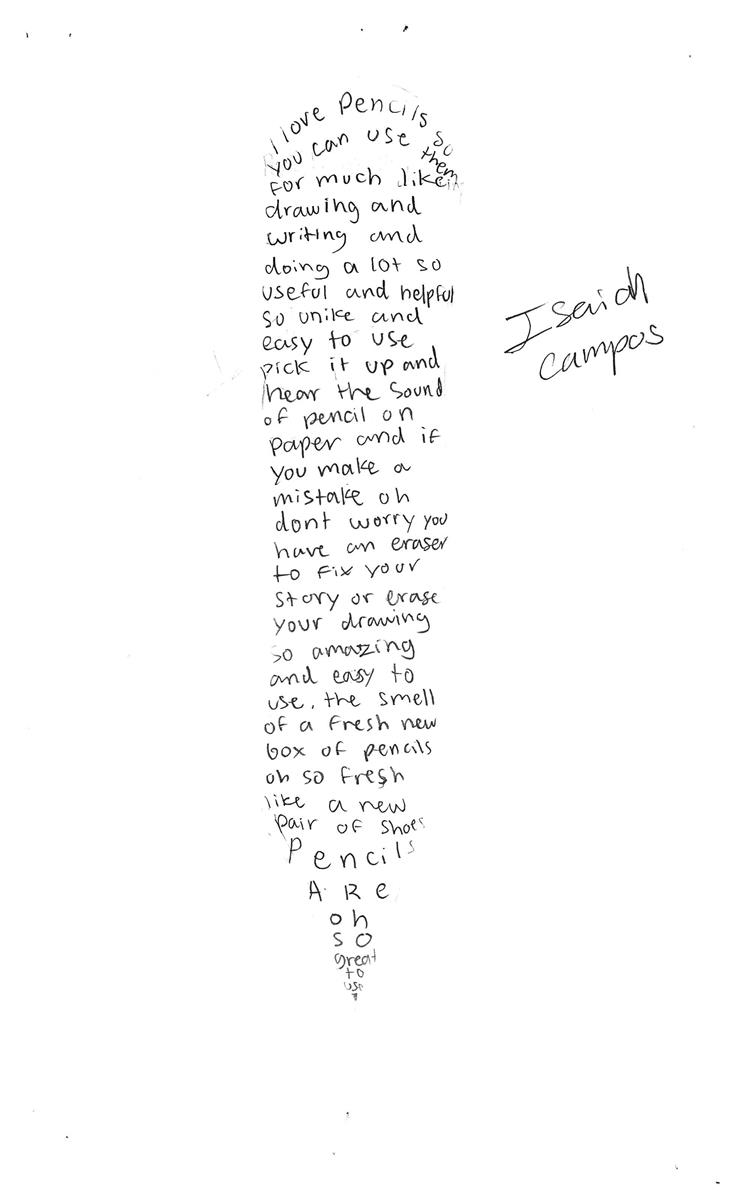 I love Pencils so
you can use them
for much like
drawing and
writing and
doing a lot so
useful and helpful
so unike and
easy to use
pick it up and
hear the sound
of pencil on
paper and if
you make a
mistake oh
dont worry you
have an eraser
to fix your
story or erase
your drawing
so amazing
and easy to
use. the smell
of a fresh new
box of pencils
oh so fresh
like a new
pair of shoes
Pencils
ARe
oh
so
great
to
use
Isaiah
campos